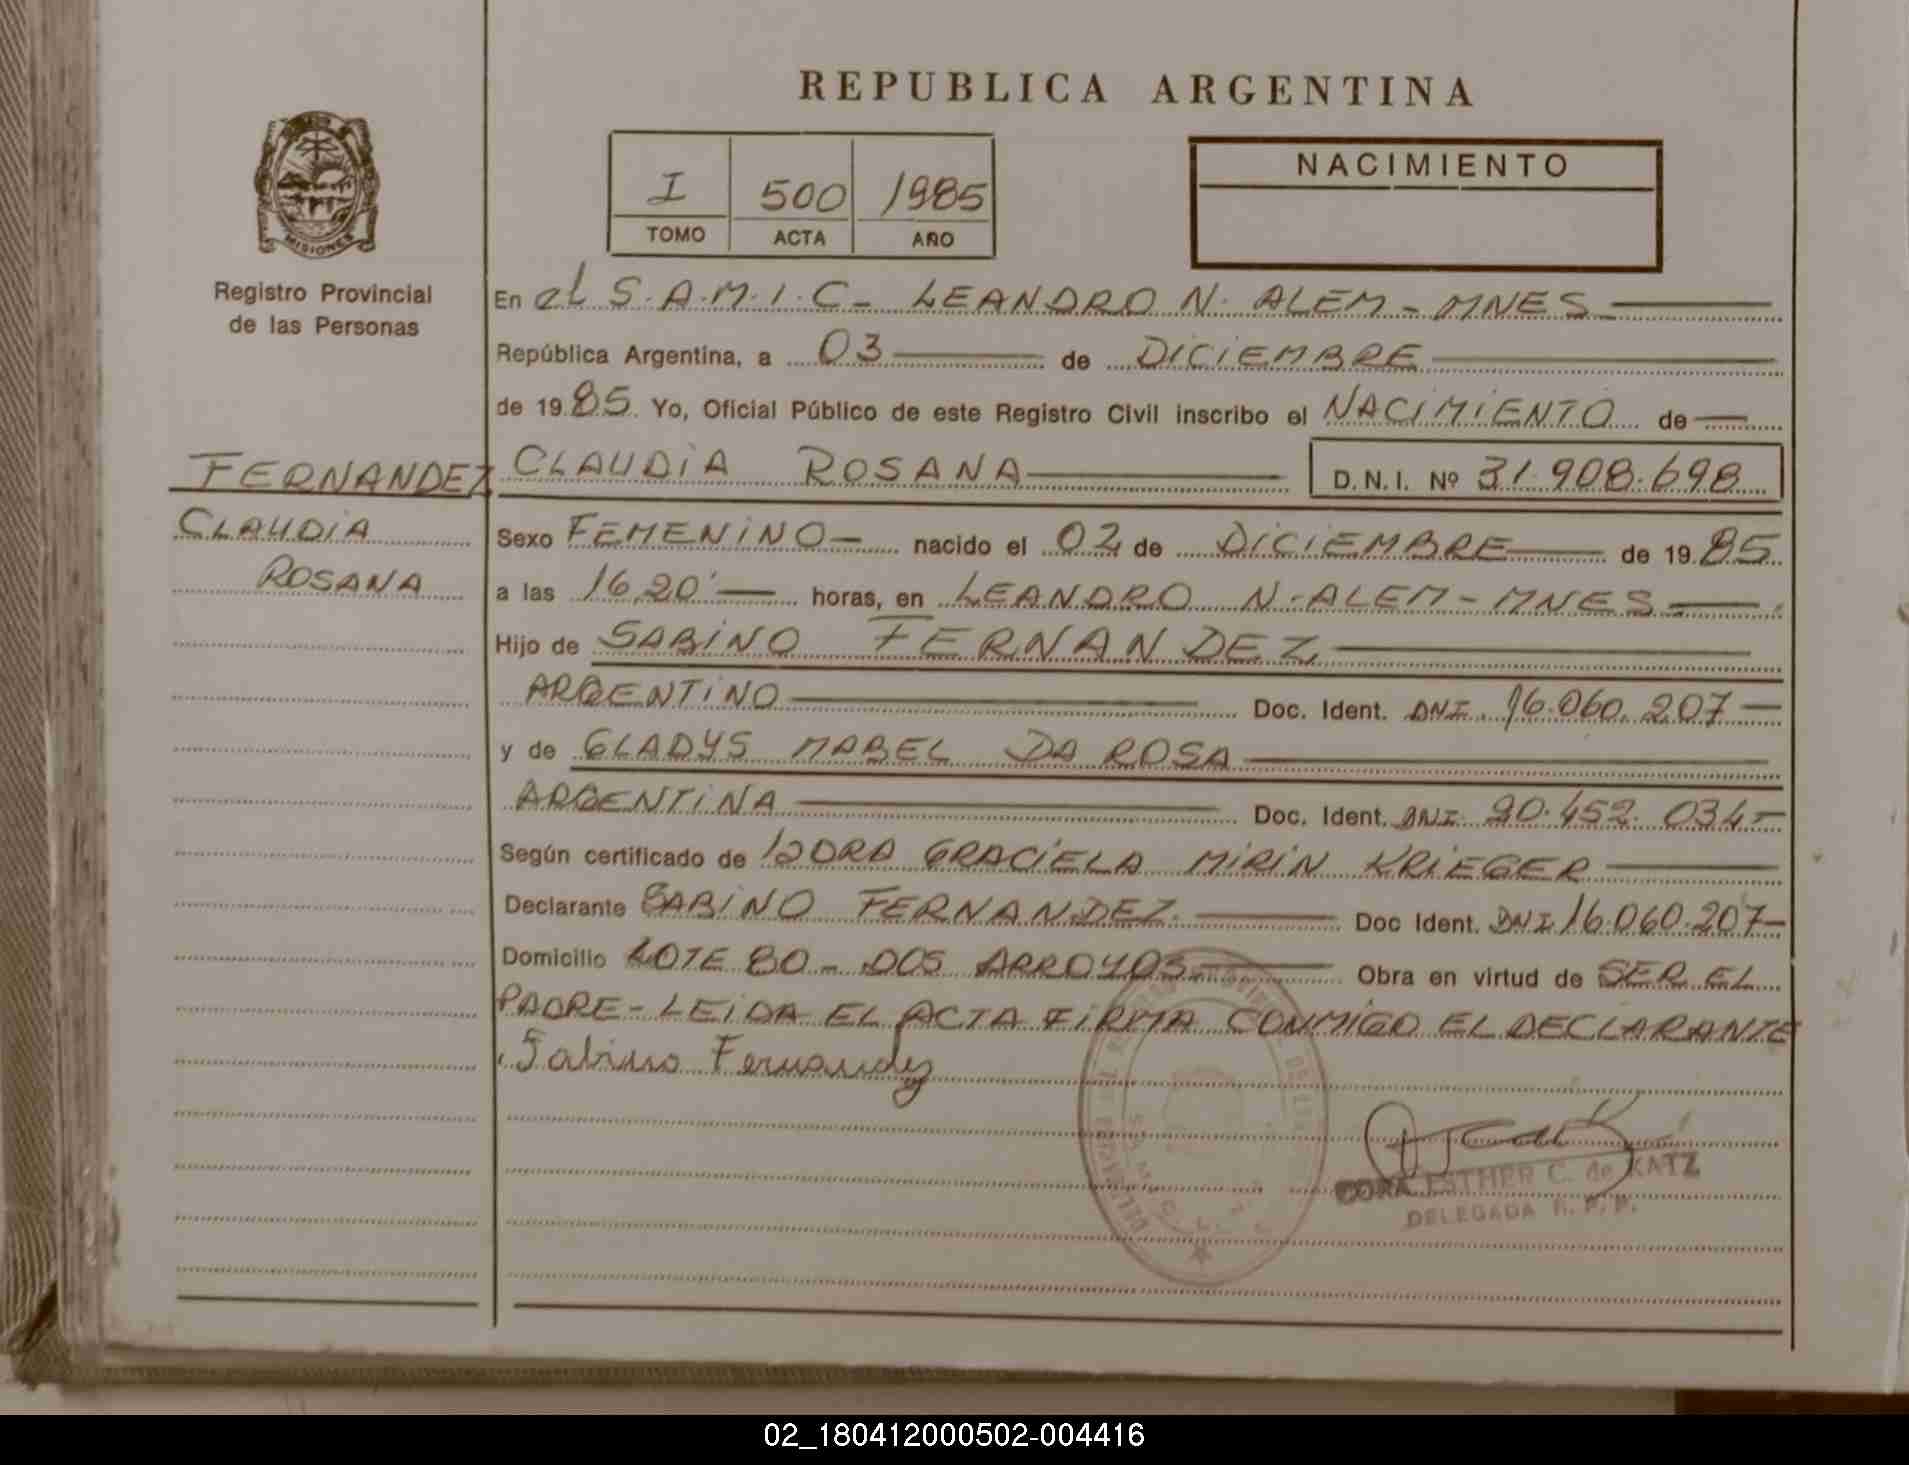 REPUBLICA ARGENTINA
MISIONES
Registro Provincial
de las Personas
I 500 1985
TOMO ACTA AÑO
NACIMIENTO
En el S.A.M.I.C- LEANDRO N. ALEM - MNES
República Argentina, a 03 de DICIEMBRE
de 19 85 Yo, Oficial Público de este Registro Civil inscribo el NACIMIENTO de
FERNANDEZ
CLAUDIA
ROSANA
CLAUDIA ROSANA D.N.I. Nº 31.908.698
Sexo FEMENINO- nacido el 02 de DICIEMBRE de 19 85
a las 16,20' horas, en LEANDRO N. ALEM - MNES
Hijo de SABINO FERNANDEZ
ARGENTINO Doc. Ident. DNI. 16.060.207-
y de GLADYS MABEL DA ROSA
ARGENTINA Doc. Ident. DNI. 20.452.034-
Según certificado de GRACIELA MIRIN KRIEGER
Declarante SABINO FERNANDEZ Doc Ident. DNI 16.060.207-
Domicilio LOTE 80 - DOS ARROYOS Obra en virtud de SER EL
PADRE - LEIDA EL ACTA FIRMA CONMIGO EL DECLARANTE
Sabino Fernandez
ESTHER C. de KATZ
DELEGADA R. P. P.
02_180412000502-004416